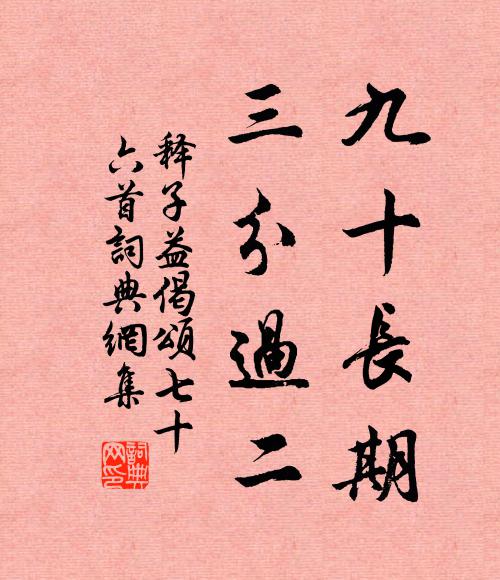 九十長期
三分過二
释子益偈頌七十
六首詞典網集
詞典
网印